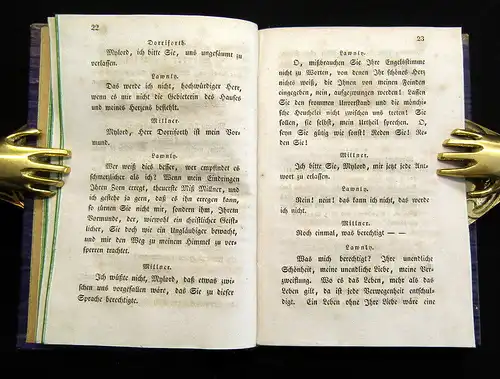 22
Dorriforth.
Mylord, ich bitte Sie, uns ungesäumt zu
verlassen.
Lawnly.
Das werde ich nicht, hochwürdiger Herr,
wenn es mir nicht die Gebieterin des Hauses
und meines Herzens befiehlt.
Millner.
Mylord, Herr Dorriforth ist mein Vor-
mund.
Lawnly.
Wer weiß dies besser, wer empfindet es
schmerzlicher als ich! Wenn mein Eindringen
Ihren Zorn erregt, theuerste Miß Millner, und
ich gestehe gern zu, daß es ihn erregen kann,
so zürnen Sie nicht mir, sondern ihm, Ihrem
Vormunde, der, wiewohl ein christlicher Geist-
licher, Sie doch wie ein Ungläubiger bewacht,
und mir den Weg zu meinem Himmel zu ver-
sperren trachtet.
Millner.
Ich wüßte nicht, Mylord, daß etwas zwi-
schen uns vorgefallen wäre, das Sie zu dieser
Sprache berechtigte.
23
Lawnly.
O, mißbrauchen Sie Ihre Engelsstimme
nicht zu Worten, von denen Ihr schönes Herz
nichts weiß, die Ihnen von meinen Feinden
eingegeben, nein, aufgezwungen werden! Lassen
Sie den frommen Unverstand und die mönchi-
sche Heuchelei nicht zwischen uns treten! Sie
sollen, sie selbst, mein Urtheil sprechen. O,
seyn Sie gütig wie sonst! Reden Sie! Re-
den Sie!
Millner.
Ich bitte Sie, Mylord, mir jetzt jede Ant-
wort zu erlassen.
Lawnly.
Nein! nein! das kann ich nicht, das werde
ich nicht.
Millner.
Noch einmal, was berechtigt — —
Lawnly.
Was mich berechtigt? Ihre unendliche
Schönheit, meine unendliche Liebe, meine Ver-
zweiflung. Wo es das Leben, mehr als das
Leben gilt, da ist jede Verwegenheit entschul-
digt. Ein Leben ohne Ihre Liebe wäre eine